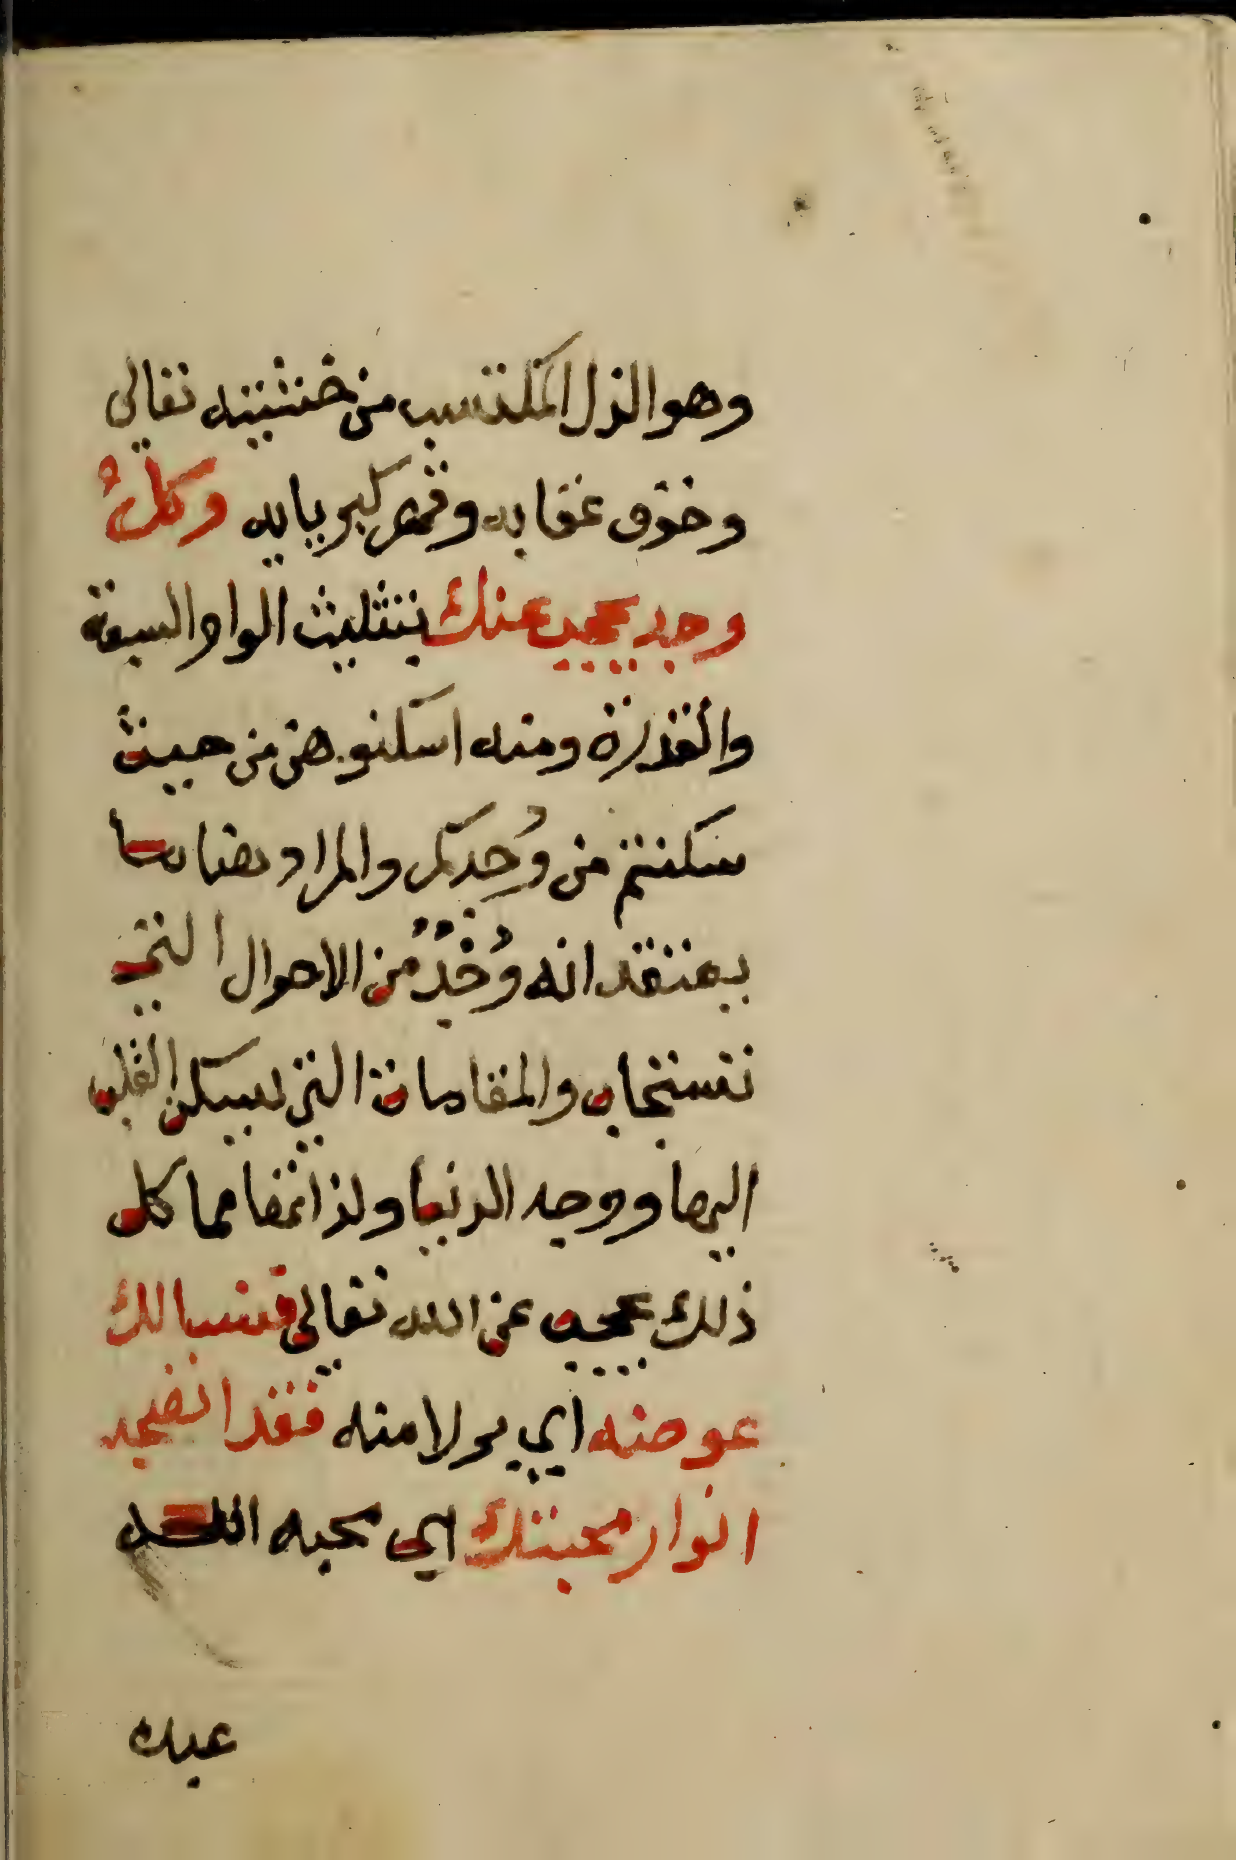 وهو الذل المكتسب من خشيته تعالى
وخوف عقابه وقهر كبريايه وكلُّ
وجد يحجب عنك بتثليث الواو السعة
والقدرة ومنه اسكنوهن من حيث
سكنتم من وُجدكم والمراد هنا ما
يعتقد انه وُجْدٌ من الاحوال التي
تستجاب والمقامات التي يسكن القلب
اليها ووجد الدنيا ولذاتها مما كل
ذلك يحجب عن الله تعالى فنسالك
عوضه اي بدلا منه فقد اتضحه
انوار محبتك اي محبه الله
عبده